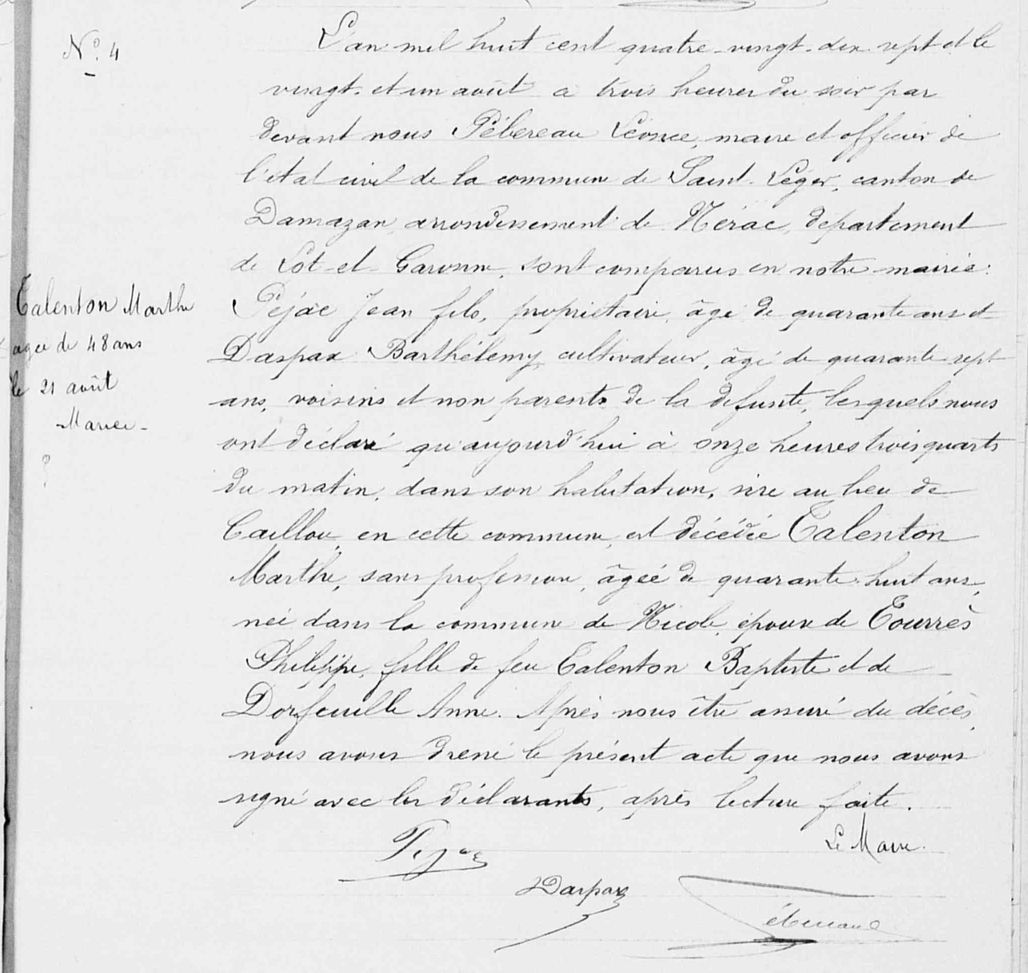 N° 4
L'an mil huit cent quatre-vingt-dix sept et le
vingt-et-un août à trois heures du soir par
devant nous Pébereau Léonce, maire et officier de
l'état civil de la commune de Saint-Léger, canton de
Damazan arrondissement de Nérac, département
de Lot-et-Garonne, sont comparus en notre mairie:
Péjac Jean fils, propriétaire, âgé de quarante ans et
Daspax Barthélemy cultivateur, âgé de quarante-sept
ans, voisins et non parents de la défunte, lesquels nous
ont déclaré qu'aujourd'hui à onze heures trois quarts
du matin, dans son habitation, sise au lieu de
Caillou, en cette commune, est décédée Talenton
Marthe, sans profession, âgée de quarante-huit ans,
née dans la commune de Nicole, épouse de Tourrès
Philippe, fille de feu Talenton Baptiste et de
Dorfeuille Anne. Après nous être assuré du décès,
nous avons dressé le présent acte que nous avons
signé avec les déclarants, après lecture faite.
Le Maire.
Péjac
Daspax
Pébereau
Talenton Marthe
agée de 48 ans
le 21 août
Mariée -
?